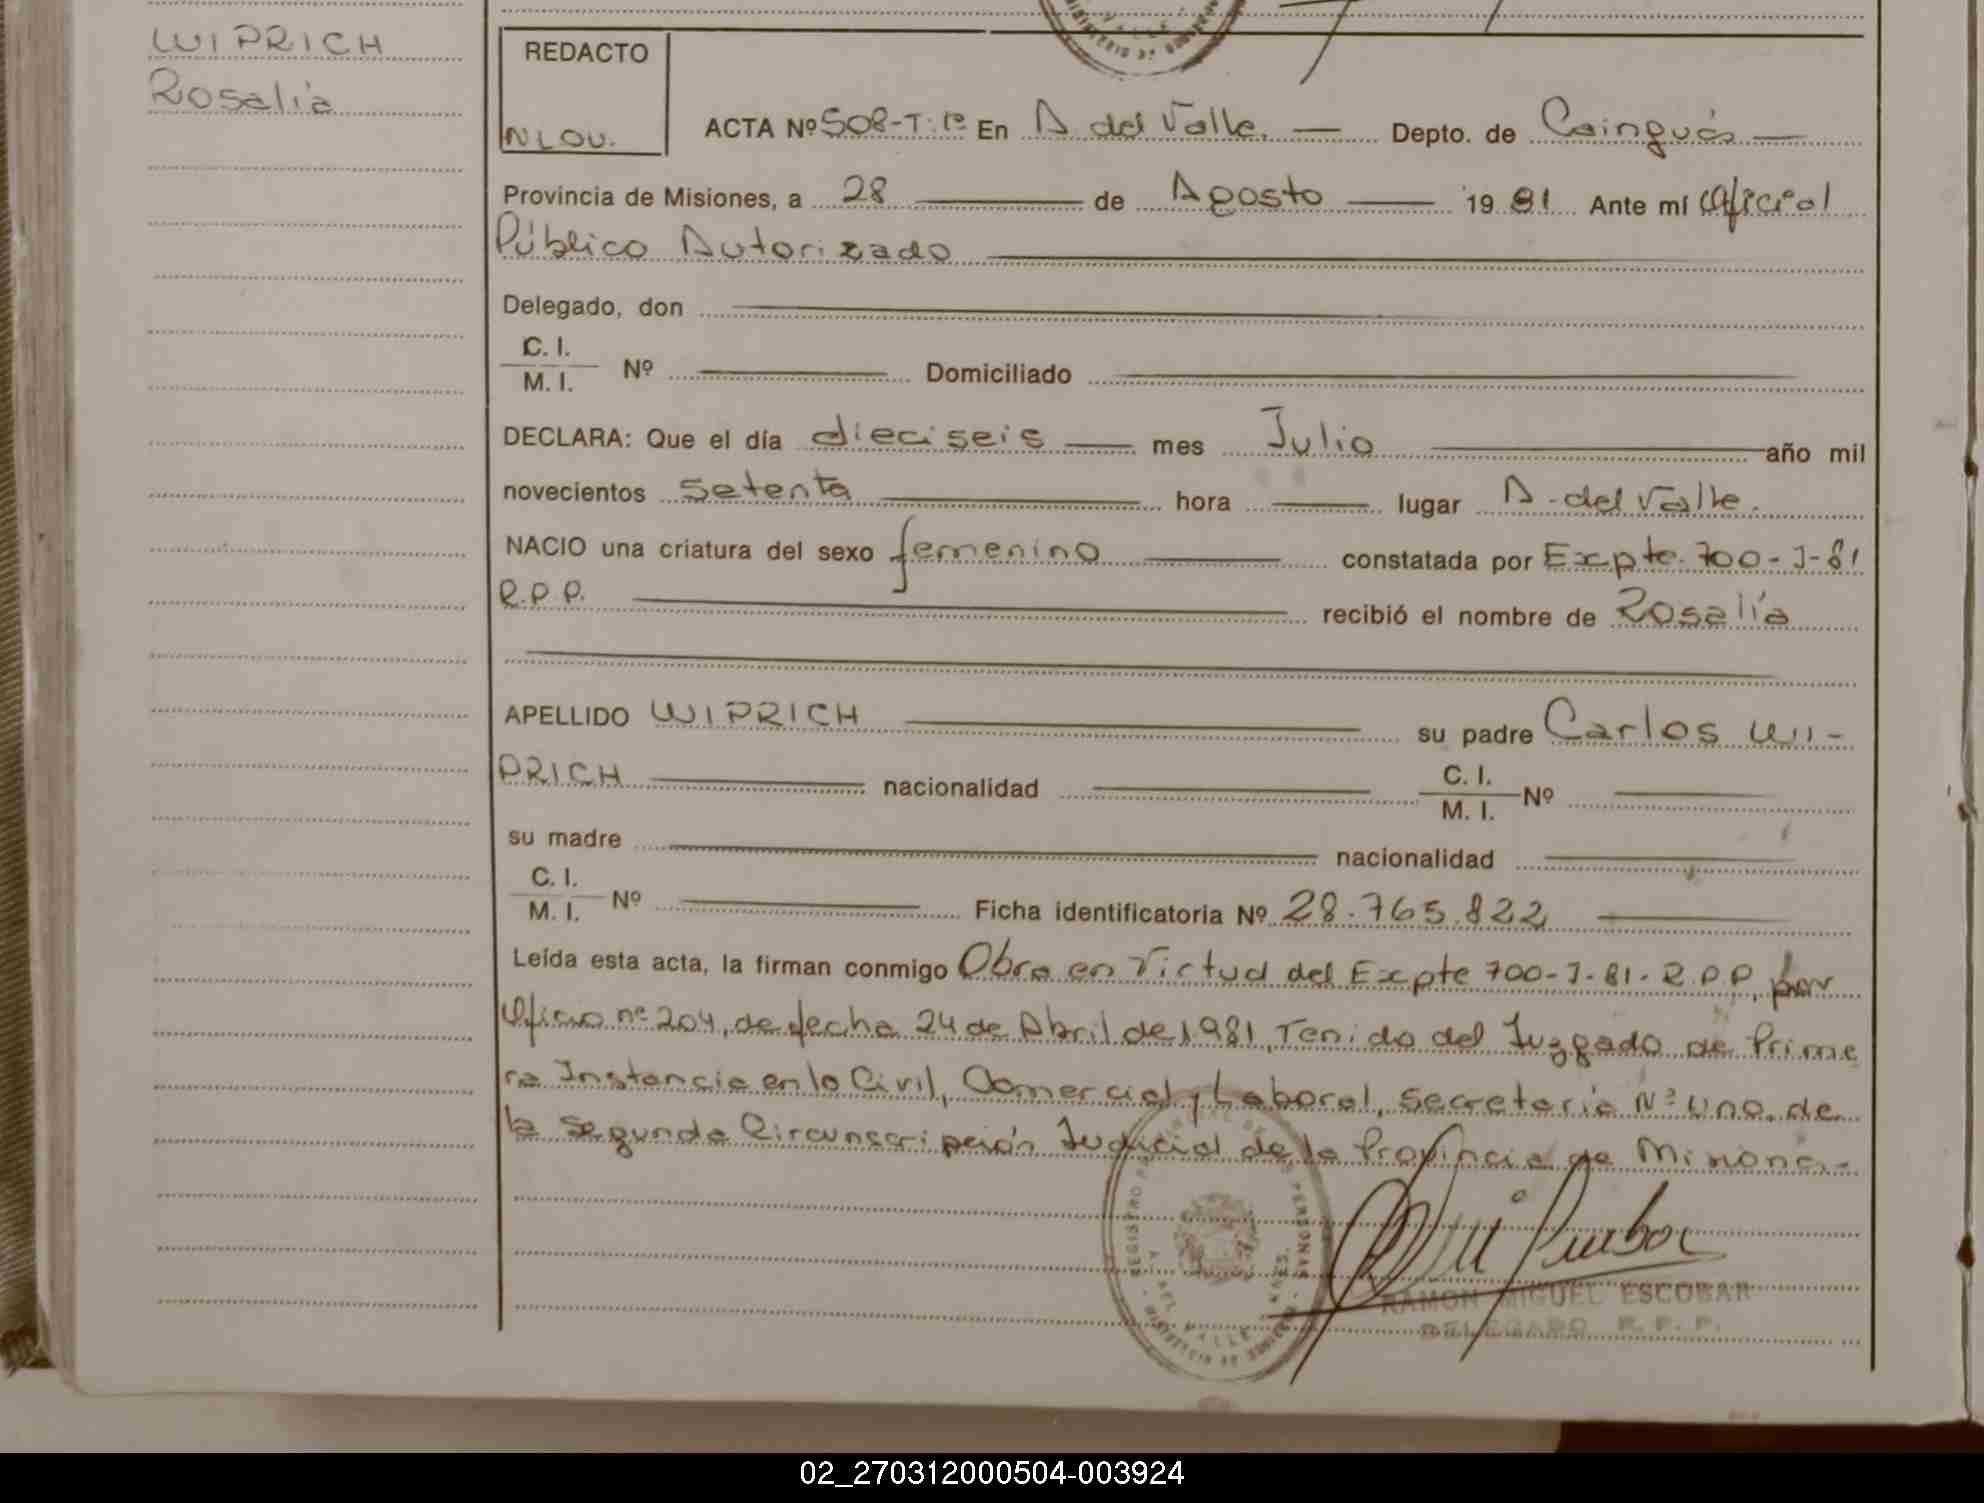 WIPRICH
Rosalía
REDACTO
NLOU.
ACTA Nº 508-T:1º En A. del Valle. Depto. de Cainguás
Provincia de Misiones, a 28 de Agosto 1981 Ante mí Oficial
Público Autorizado
Delegado, don
C. I.
M. I. Nº Domiciliado
DECLARA: Que el día dieciseis mes Julio año mil
novecientos setenta hora lugar A. del Valle.
NACIO una criatura del sexo femenino constatada por Expte. 700-J-81
R.P.P. recibió el nombre de Rosalía
APELLIDO WIPRICH su padre Carlos WI-
PRICH nacionalidad C. I.
M. I. Nº
su madre nacionalidad
C. I.
M. I. Nº Ficha identificatoria Nº 28.765.822
Leída esta acta, la firman conmigo Obra en Virtud del Expte 700-J-81-R.P.P, por
Oficio nº 204, de fecha 24 de Abril de 1981, Tenido del Juzgado de Prime
ra Instancia en lo Civil, Comercial y Laboral, Secretaría Nº Uno. de
la Segunda Circunscripción Judicial de la Provincia de Misiones.-
RAMON MIGUEL ESCOBAR
DELEGADO R. P. P.
02_270312000504-003924